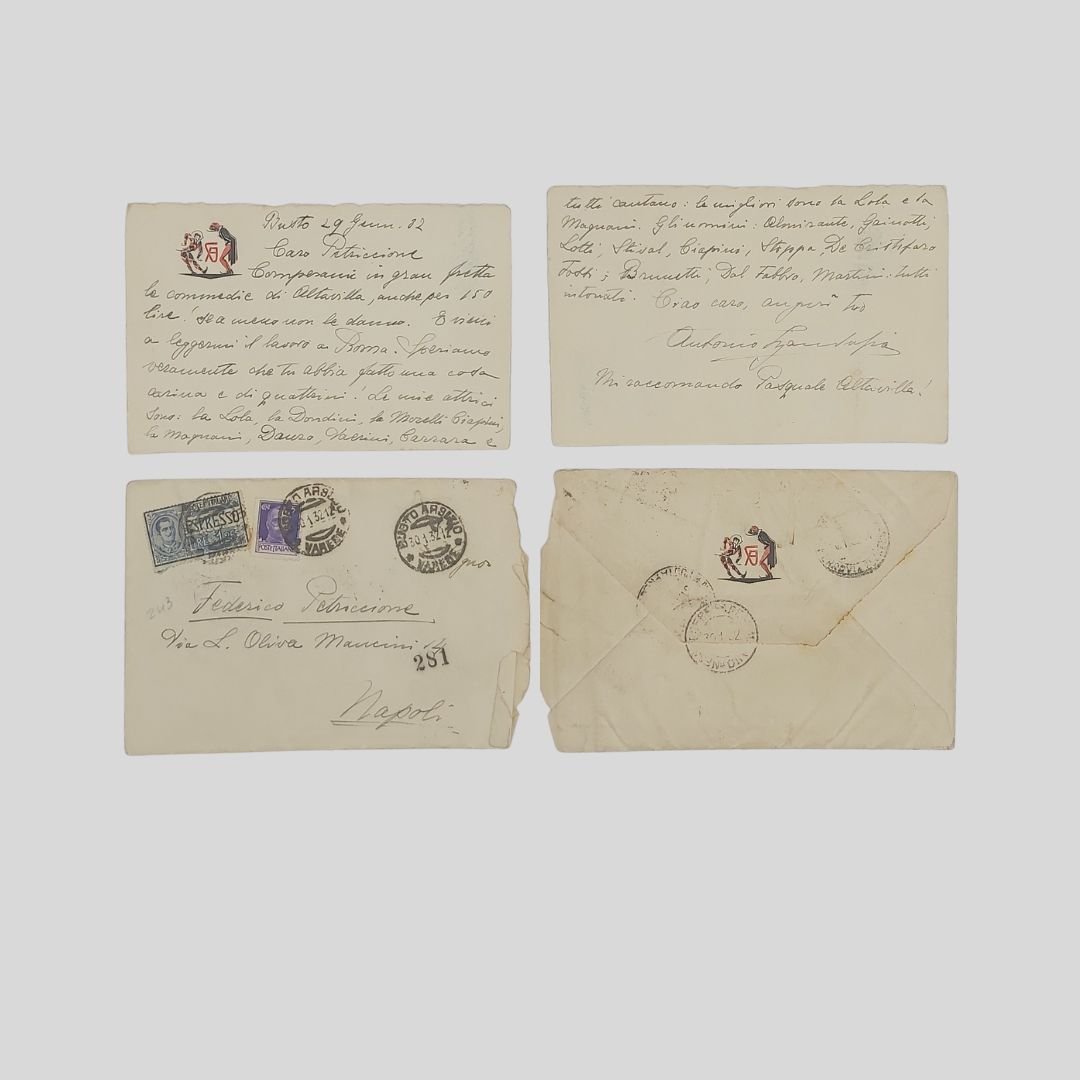 Busto 29 Genn. 32
Caro Petriccione
Comperami in gran fretta
le commedie di Altavilla, anche per 150
lire! Se a meno non le danno. E vieni
a leggermi il lavoro a Roma. Speriamo
veramente che tu abbia fatto una cosa
carina e di quattrini! Le mie attrici
sono: la Lola, la Dondini, la Moretti Ciapini,
la Magnani, Carrara e
tutti cantano: le migliori sono la Lola e la
Magnani. Gli uomini: Almirante, Gainotti,
Lotti, Stival, Ciapini, Stoppa, De Cristofaro
Tosti; Brunetti, Dal Fabbro, Martini: tutti
intonati. Ciao caro, auguri tuo
Antonio Gandusio
Mi raccomando Pasquale Altavilla!
ESPRESSO
LIRE 1,25
POSTE ITALIANE
BUSTO ARSIZIO
30.1.32.12
VARESE
BUSTO ARSIZIO
30.1.32.12
VARESE
243
Federico Petriccione
Via L. Oliva Mancini
281
Napoli